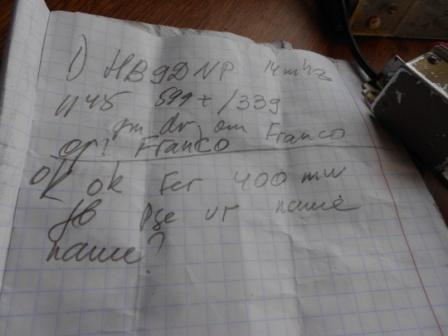 1) HB9DNP 14mhz
1145 599+/339
gm dr om Franco
op? Franco
ok ok Fer 400 mw
fb Pse ur name
name?